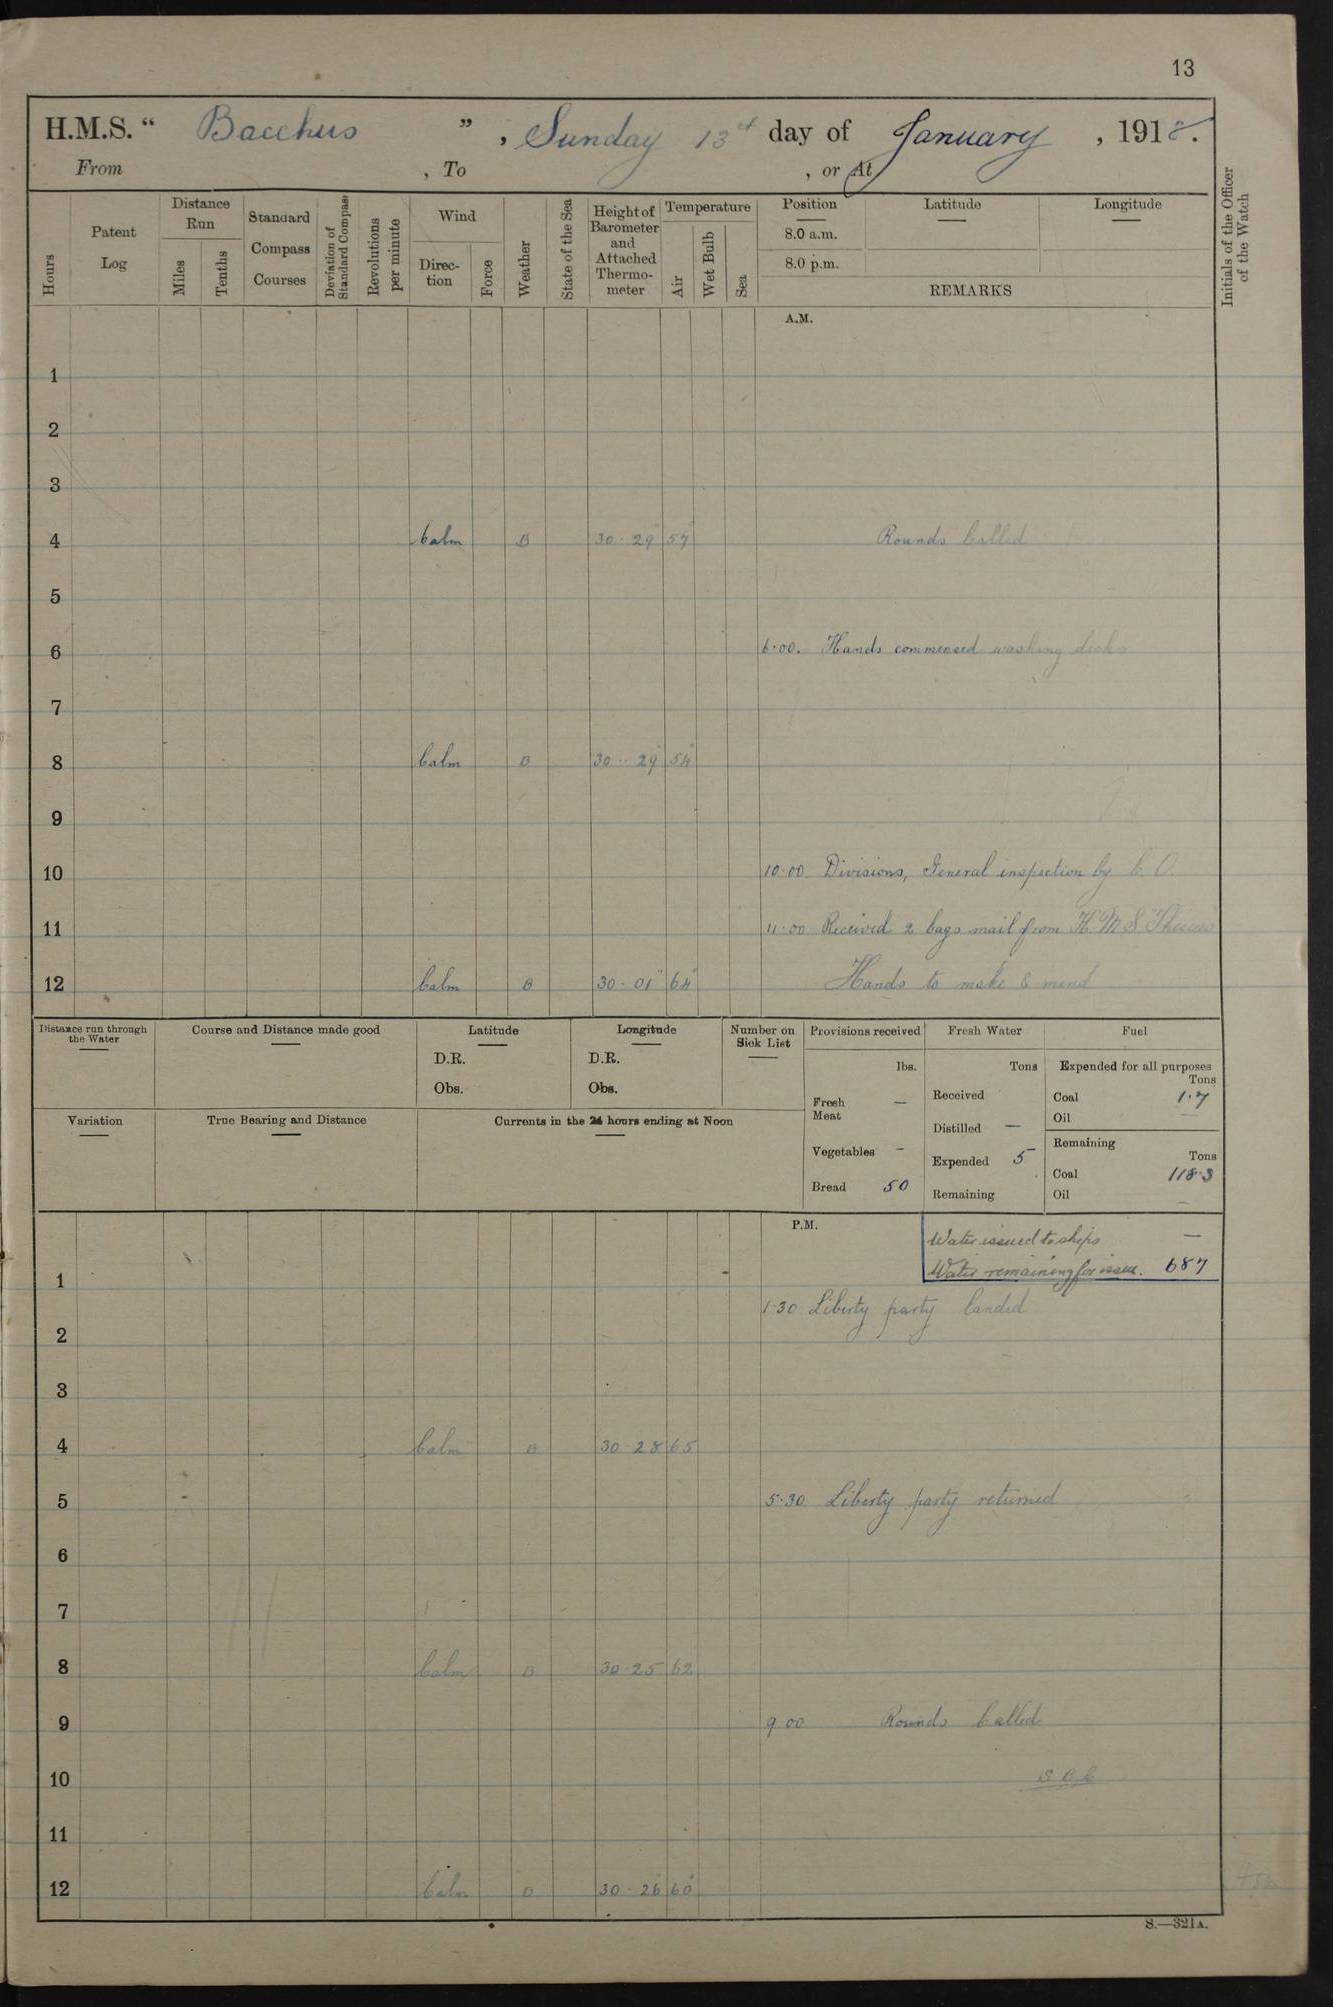 13
H.M.S. “ Bacchus ” , Sunday 13th day of January , 1918.
From , To , or At
Hours
Patent Log
Distance Run
Miles
Tenths
Standard Compass Courses
Deviation of Standard Compass
Revolutions per minute
Wind
Direc-tion
Force
Weather
State of the Sea
Height of Barometer and Attached Thermo-meter
Temperature
Air
Wet Bulb
Sea
Position Latitude Longitude
8.0 a.m.
8.0 p.m.
REMARKS
Initials of the Officer of the Watch
A.M.
1
2
3
4 Calm B 30·29 57 Rounds Called
5
6 6·00. Hands commenced washing decks
7
8 Calm B 30·29 54
9
10 10·00 Divisions, General inspection by C.O.
11 11·00 Received 2 bags mail from H.M.S. Theseus
12 Calm B 30·01 64 Hands to make & mend
Distance run through the Water
Course and Distance made good
Latitude
D.R.
Obs.
Longitude
D.R.
Obs.
Number on Sick List
Provisions received
lbs.
Fresh Meat —
Vegetables -
Bread 50
Fresh Water
Tons
Received
Distilled —
Expended 5
Remaining
Fuel
Expended for all purposes
Tons
Coal 1·7
Oil —
Remaining
Tons
Coal 118·3
Oil —
Variation
True Bearing and Distance
Currents in the 24 hours ending at Noon
P.M.
Water issued to ships —
Water remaining for issue. 687
1
1·30 Liberty party landed
2
3
4 Calm B 30 28 65
5 5·30 Liberty party returned
6
7
8 Calm B 30·25 62
9 9 00 Rounds Called
10
11
12 Calm B 30·26 60
S.—321A.